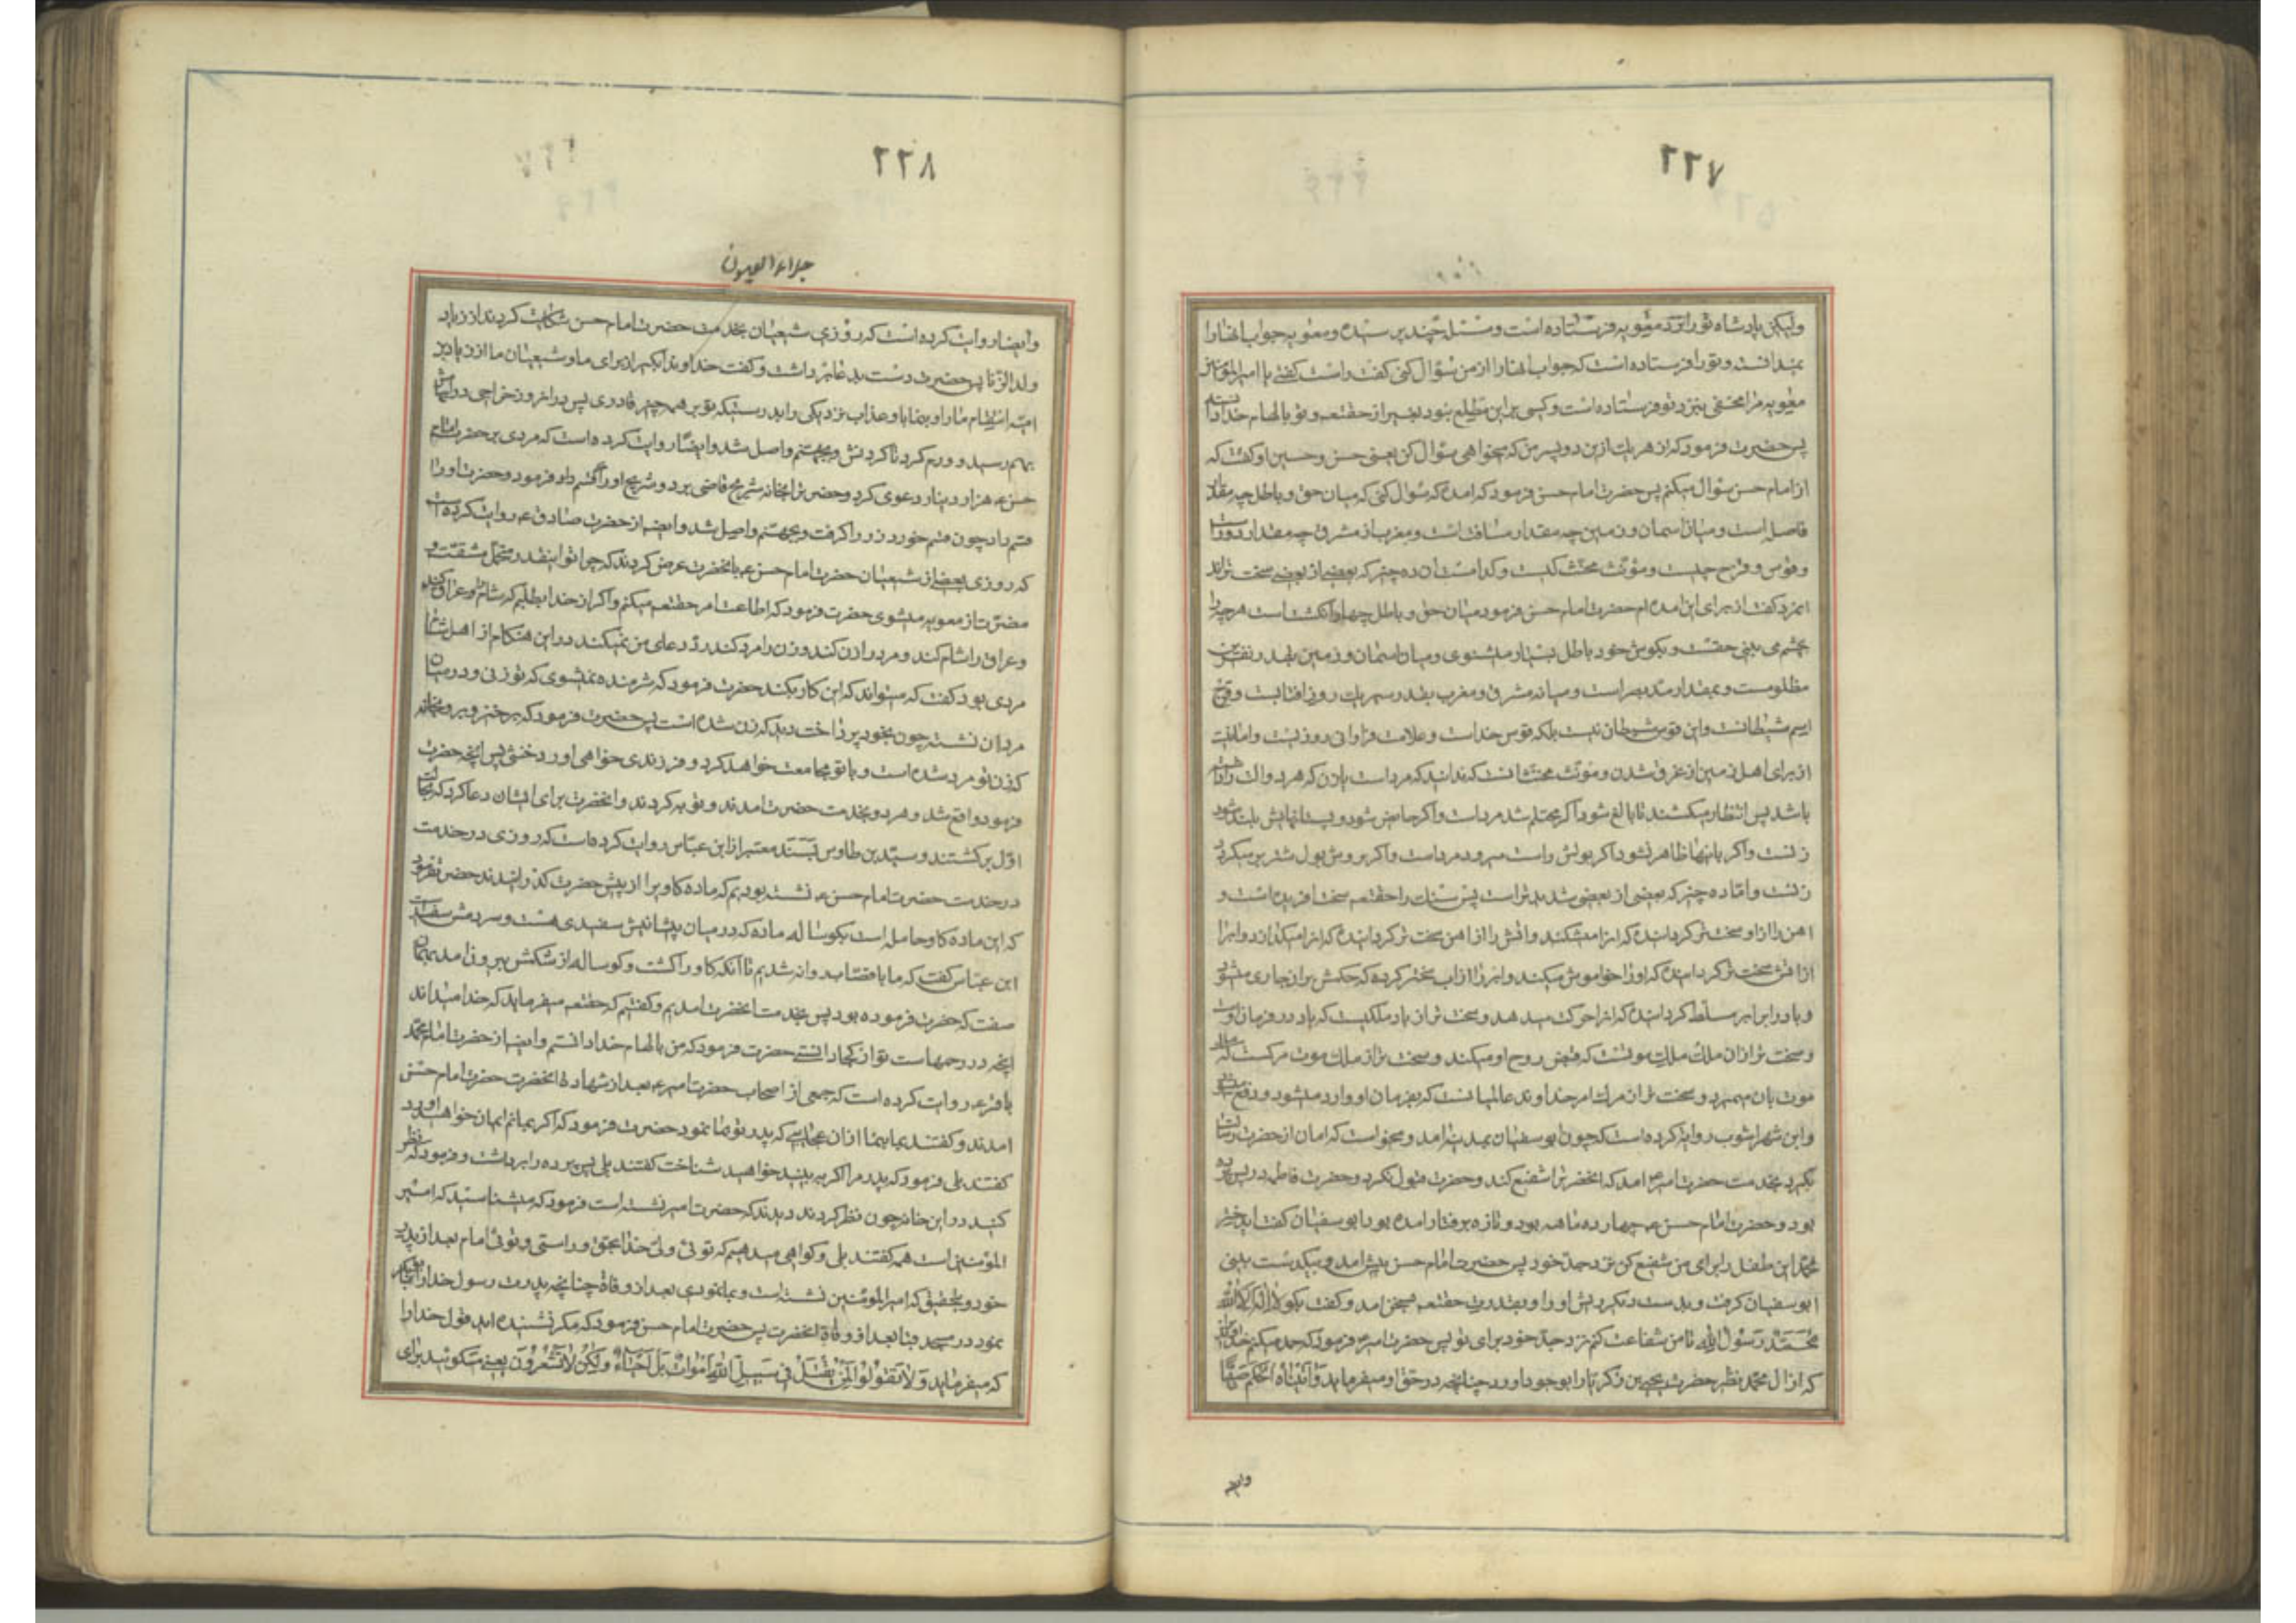 ٢٢٧
ولیکن پادشاه تو را نزد معویه فرستاده است و مسئلهٔ چند پرسیده و معویه جواب انها را
نمیدانست و تو را فرستاده است که جواب انها را از من سؤال کنی گفت راست گفتی یا امیرالمؤمنین
معویه مرا مخفی بنزد تو فرستاده است و کسی بر این مطلع نبود بغیر از حقتعم و تو بالهام خدا دانستی
پس حضرت فرمود که از هر یک ازین دو پسر من که میخواهی سؤال کن یعنی حسن و حسین او گفت که
از امام حسن سؤال میکنم پس حضرت امام حسن فرمود که امدهٔ که سؤال کنی که میان حق و باطل چه مقدار
فاصله است و میان اسمان و زمین چه مقدار مسافت است و مغرب از مشرق چه مقدار دور است
و قوس و قزح چیست و مؤنث مخنث کیست و کدامست ان ده چیز که بعضی از بعضی سخت تراند
انمرد گفت از برای این امده ام حضرت امام حسن فرمود میان حق و باطل چهار انگشت است هر چه را
بچشم می بینی حقست و بگوش خود باطل بسیار میشنوی و میان اسمان و زمین بقدر نفرین
مظلومست و بمقدار مد بصر است و میانه مشرق و مغرب بقدر سیر یک روز افتابست و قزح
اسم شیطانست و این قوس شیطان نیست بلکه قوس خداست و علامت فراوانی روزیست و امانیست
از برای اهل زمین از غرق شدن و مؤنث مخنث انست که ندانند که مرد است یا زن که هر دو الت را داشته
باشد پس انتظار میکشند تا بالغ شود اگر محتلم شد مرد است و اگر حایض شود و پستانهایش بلند شود
زنست و اگر باینها ظاهر نشود اگر بولش راست میرود مرد است و اگر بروش بول شتر بر میگردد
زنست و اما ده چیز که بعضی از بعضی شدید تر است پس سنک را حقتعم سخت افریده است و
اهن را از او سخت تر گردانیدهٔ که انرا میشکند و اتش را از اهن سخت تر گردانیدهٔ که انرا میگدازد و اب را
از اتش سخت تر گردانیدهٔ که او را خاموش میکند و ابر را از اب سختر کرده که حکمش بر ان جاری میشود
و باد را بر ابر مسلط گردانیدهٔ که انرا حرکت میدهد و سخت تر از باد ملکیست که باد در فرمان اوست
و سخت تر از ان ملک ملک موتست که قبض روح او میکند و سخت تر از ملک موت مرگست که ملک
موت بان میمیرد و سخت تر از مرگ امر خداوند عالمیانست که بفرمان او وارد میشود و دفع میشود
و ابن شهراشوب روایت کرده است که چون ابوسفیان بمدینه امد و میخواست که امان از حضرت رسالت
بگیرد بخدمت حضرت امیر امد که انحضرت را شفیع کند و حضرت قبول نکرد و حضرت فاطمه در پس پرده
بود و حضرت امام حسن ع چهارده ماهه بود و تازه برفتار امده بود ابوسفیان گفت ای دختر
محمد این طفل را برای من شفیع کن نزد جد خود پس حضرت امام حسن پیش امد و بیکدست بینی
ابوسفیان گرفت و بدست دیگر ریش او را و بقدرت حقتعم بسخن امد و گفت بگو لا اله الا الله
محمد رسول الله تا من شفاعت کنم نزد جد خود برای تو پس حضرت امیر فرمود که حمد میکنم خداوندی را
که از ال محمد نظیر حضرت یحیی بن زکریا را بوجود اورد چنانچه در حق او میفرماید وَاٰتَیْنٰاهُ الْحُکْمَ صَبِیًّا
وایض
٢٢٨
جلاء العیون
و ایضا روایت کرده است که روزی شیعیان بخدمت حضرت امام حسن شکایت کردند از زیاد
ولد الزنا پس حضرت دست بدعا برداشت و گفت خداوندا بگیر از برای ما و شیعیان ما از زیاد بن
ابیه انتقام ما را و بنما باو عذاب نزدیکی را بدرستیکه تو بر همه چیز قادری پس در انروز خراجی در ابهامش
بهم رسید و ورم کرد تا گردنش و بجهنم واصل شد و ایضا روایت کرده است که مردی بر حضرت امام
حسن ع هزار دینار دعوی کرد و حضرت را بخانه شریح قاضی برد و شریح او را قسم داد فرمود و حضرت او را
قسم داد چون قسم خورد زر را گرفت و بجهنم واصل شد و ایضا از حضرت صادق ع روایت کرده است
که روزی بعضی از شیعیان حضرت امام حسن ع بانحضرت عرض کردند که چرا تو اینقدر متحمل مشقت و
مضرت از معویه میشوی حضرت فرمود که اطاعت امر حقتعم میکنم و اگر از خدا بطلبم که شام را عراق کند
و عراق را شام کند و مرد را زن کند و زن را مرد کند رد دعای من نمیکند در این هنگام از اهل شام
مردی بود گفت که میتواند که این کار بکند حضرت فرمود که شرمنده نمیشوی که تو زنی و در میان
مردان نشسته چون بخود پرداخت دید که زن شده است پس حضرت فرمود که برخیز و برو بخانه
که زن تو مرد شده است و با تو مجامعت خواهد کرد و فرزندی خواهی اورد خنثی پس انچه حضرت
فرمود واقع شد و هر دو بخدمت حضرت امدند و توبه کردند و انحضرت برای ایشان دعا کرد که بحالت
اول برگشتند و سید بن طاوس بسند معتبر از ابن عباس روایت کرده است که روزی در خدمت
در خدمت حضرت امام حسن ع نشسته بودیم که ماده گاوی را از پیش حضرت گذرانیدند حضرت فرمود
که این ماده گاو حامله است بگوساله ماده که در میان پیشانیش سفیدی هست و سر دمش سفید است
ابن عباس گفت که ما با قصاب روانه شدیم تا انکه گاو را کشت و گوساله از شکمش بیرون امد بهمان
صفت که حضرت فرموده بود پس بخدمت انحضرت امدیم و گفتیم که حقتعم میفرماید که خدا میداند
انچه در رحمهاست تو از کجا دانستی حضرت فرمود که من بالهام خدا دانستم و ایضا از حضرت امام محمد
باقر ع روایت کرده است که جمعی از اصحاب حضرت امیر ع بعد از شهادة انحضرت حضرت امام حسن
امدند و گفتند بما بنما از ان عجایبی که پدر تو بما نمود حضرت فرمود که اگر بنمایم ایمان خواهید اورد
گفتند بلی فرمود که پدر مرا اگر به بینید خواهید شناخت گفتند بلی پس پرده را برداشت و فرمود که نظر
کنید در این خانه چون نظر کردند دیدند که حضرت امیر نشسته است فرمود که میشناسید که امیر
المؤمنین است همه گفتند بلی و گواهی میدهیم که توئی ولی خدا بحق و راستی و توئی امام بعد از پدر
خود و بتحقیق که امیرالمؤمنین نشسته است و بما نمودی بعد از وفاة چنانچه پدرت رسول خدا را بابوبکر
نمود در مسجد قبا بعد از وفاة انحضرت پس حضرت امام حسن فرمود که مگر نشنیده اید قول خدا را
که میفرماید وَلاٰ تَقُولُوا لِمَنْ یُقْتَلُ فِی سَبِیلِ اللهِ اَمْوٰاتٌ بَلْ اَحْیٰاءٌ وَلٰکِنْ لاٰ تَشْعُرُونَ یعنی مگوئید برای